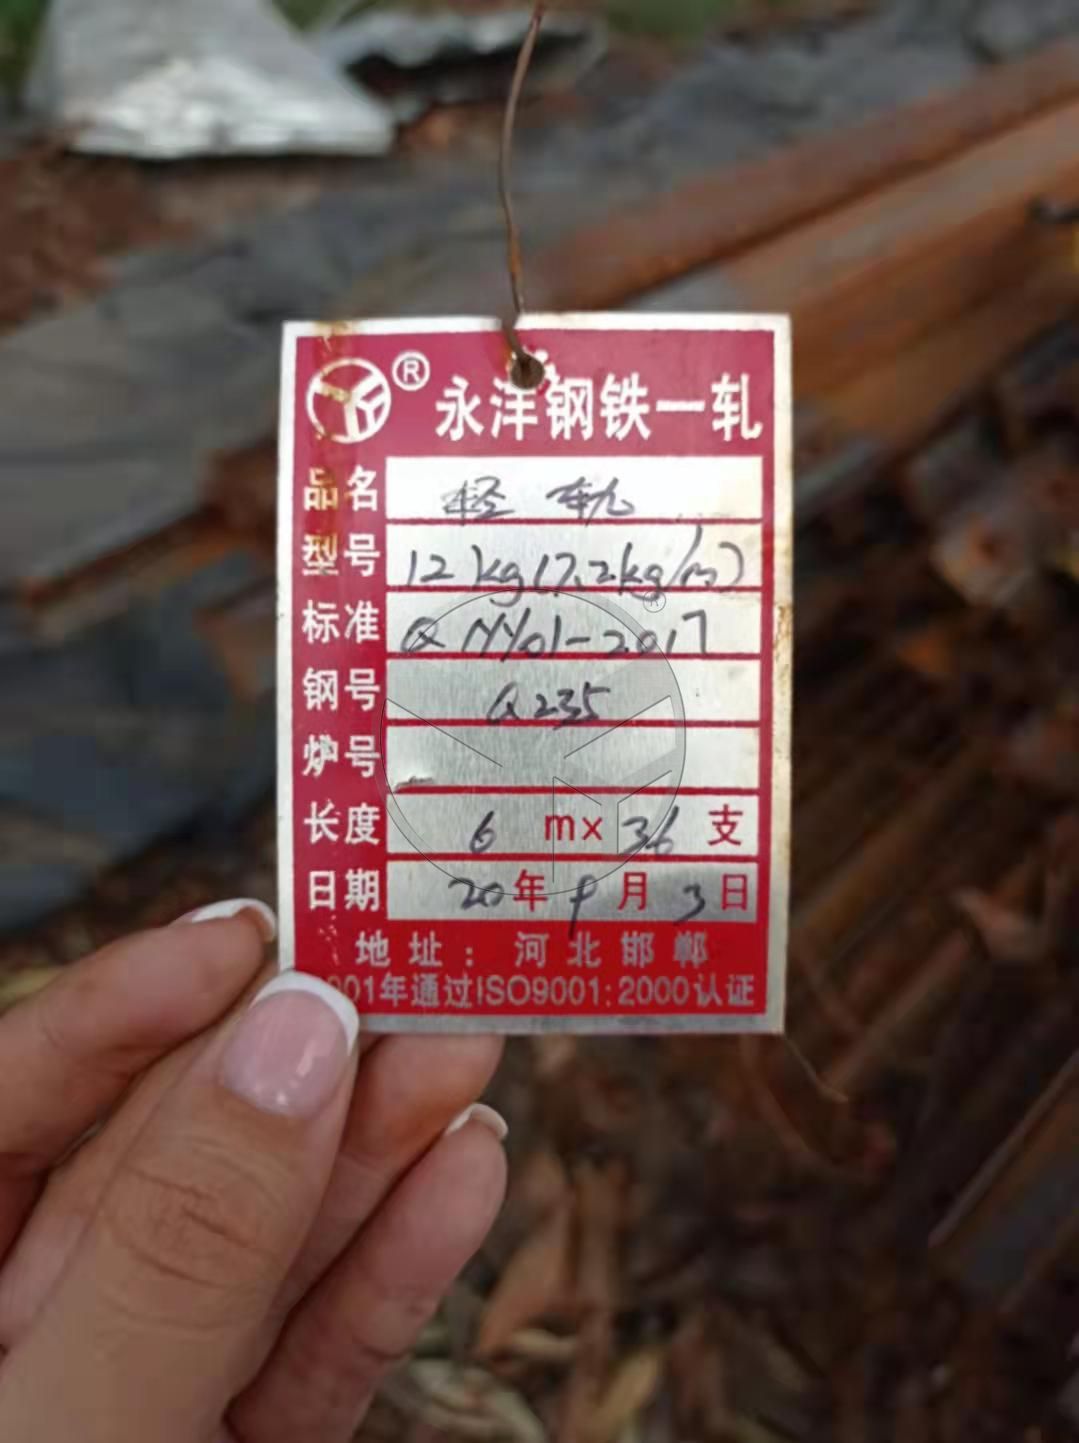 ® 永洋钢铁一轧
品名 轻轨
型号 12kg(7.2kg/m)
标准 Q/YY01-2017
钢号 Q235
炉号
长度 6 m× 36 支
日期 20年9月3日
地址：河北邯郸
001年通过ISO9001:2000认证